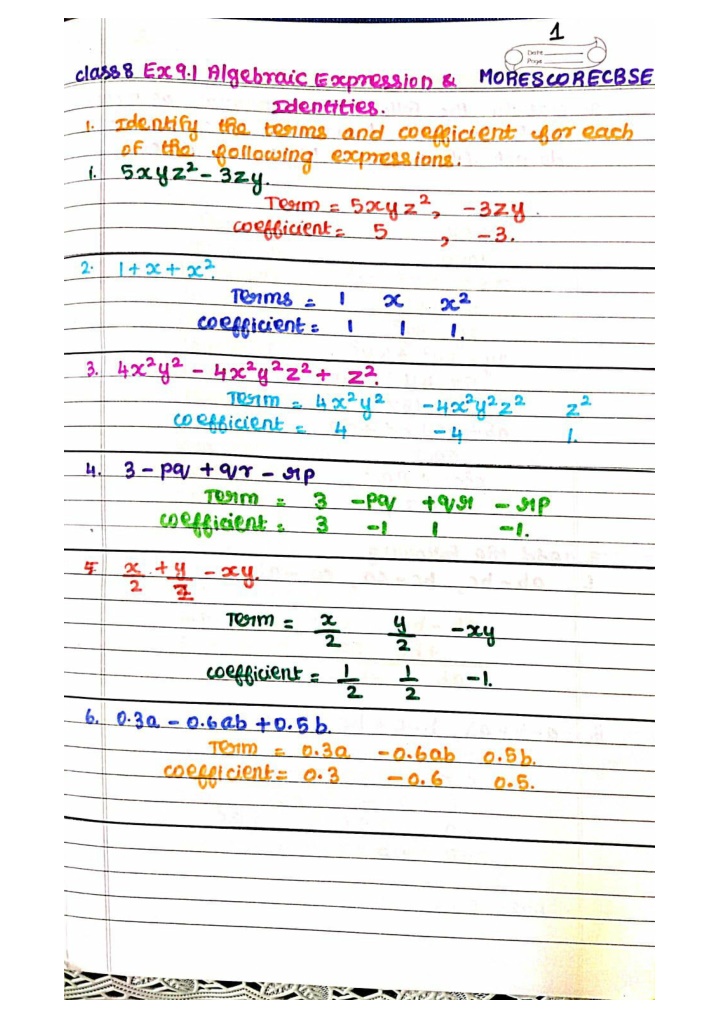 1
Date
Page
class 8 Ex 9.1 Algebraic Expression & MORESCORECBSE
Identities.
1. Identify the terms and coefficient for each
of the following expressions.
i. 5xyz² - 3zy.
Term = 5xyz², -3zy.
coefficient = 5 , -3.
2. 1 + x + x².
Terms = 1 x x²
coefficient = 1 1 1.
3. 4x²y² - 4x²y²z² + z².
Term = 4x²y² -4x²y²z² z²
coefficient = 4 -4 1.
4. 3 - pq + qr - rp
Term = 3 -pq +qr - rp
coefficient = 3 -1 1 -1.
5. x/2 + y/2 - xy.
Term = x/2 y/2 -xy
coefficient = 1/2 1/2 -1.
6. 0.3a - 0.6ab + 0.5b.
Term = 0.3a -0.6ab 0.5b.
coefficient = 0.3 -0.6 0.5.